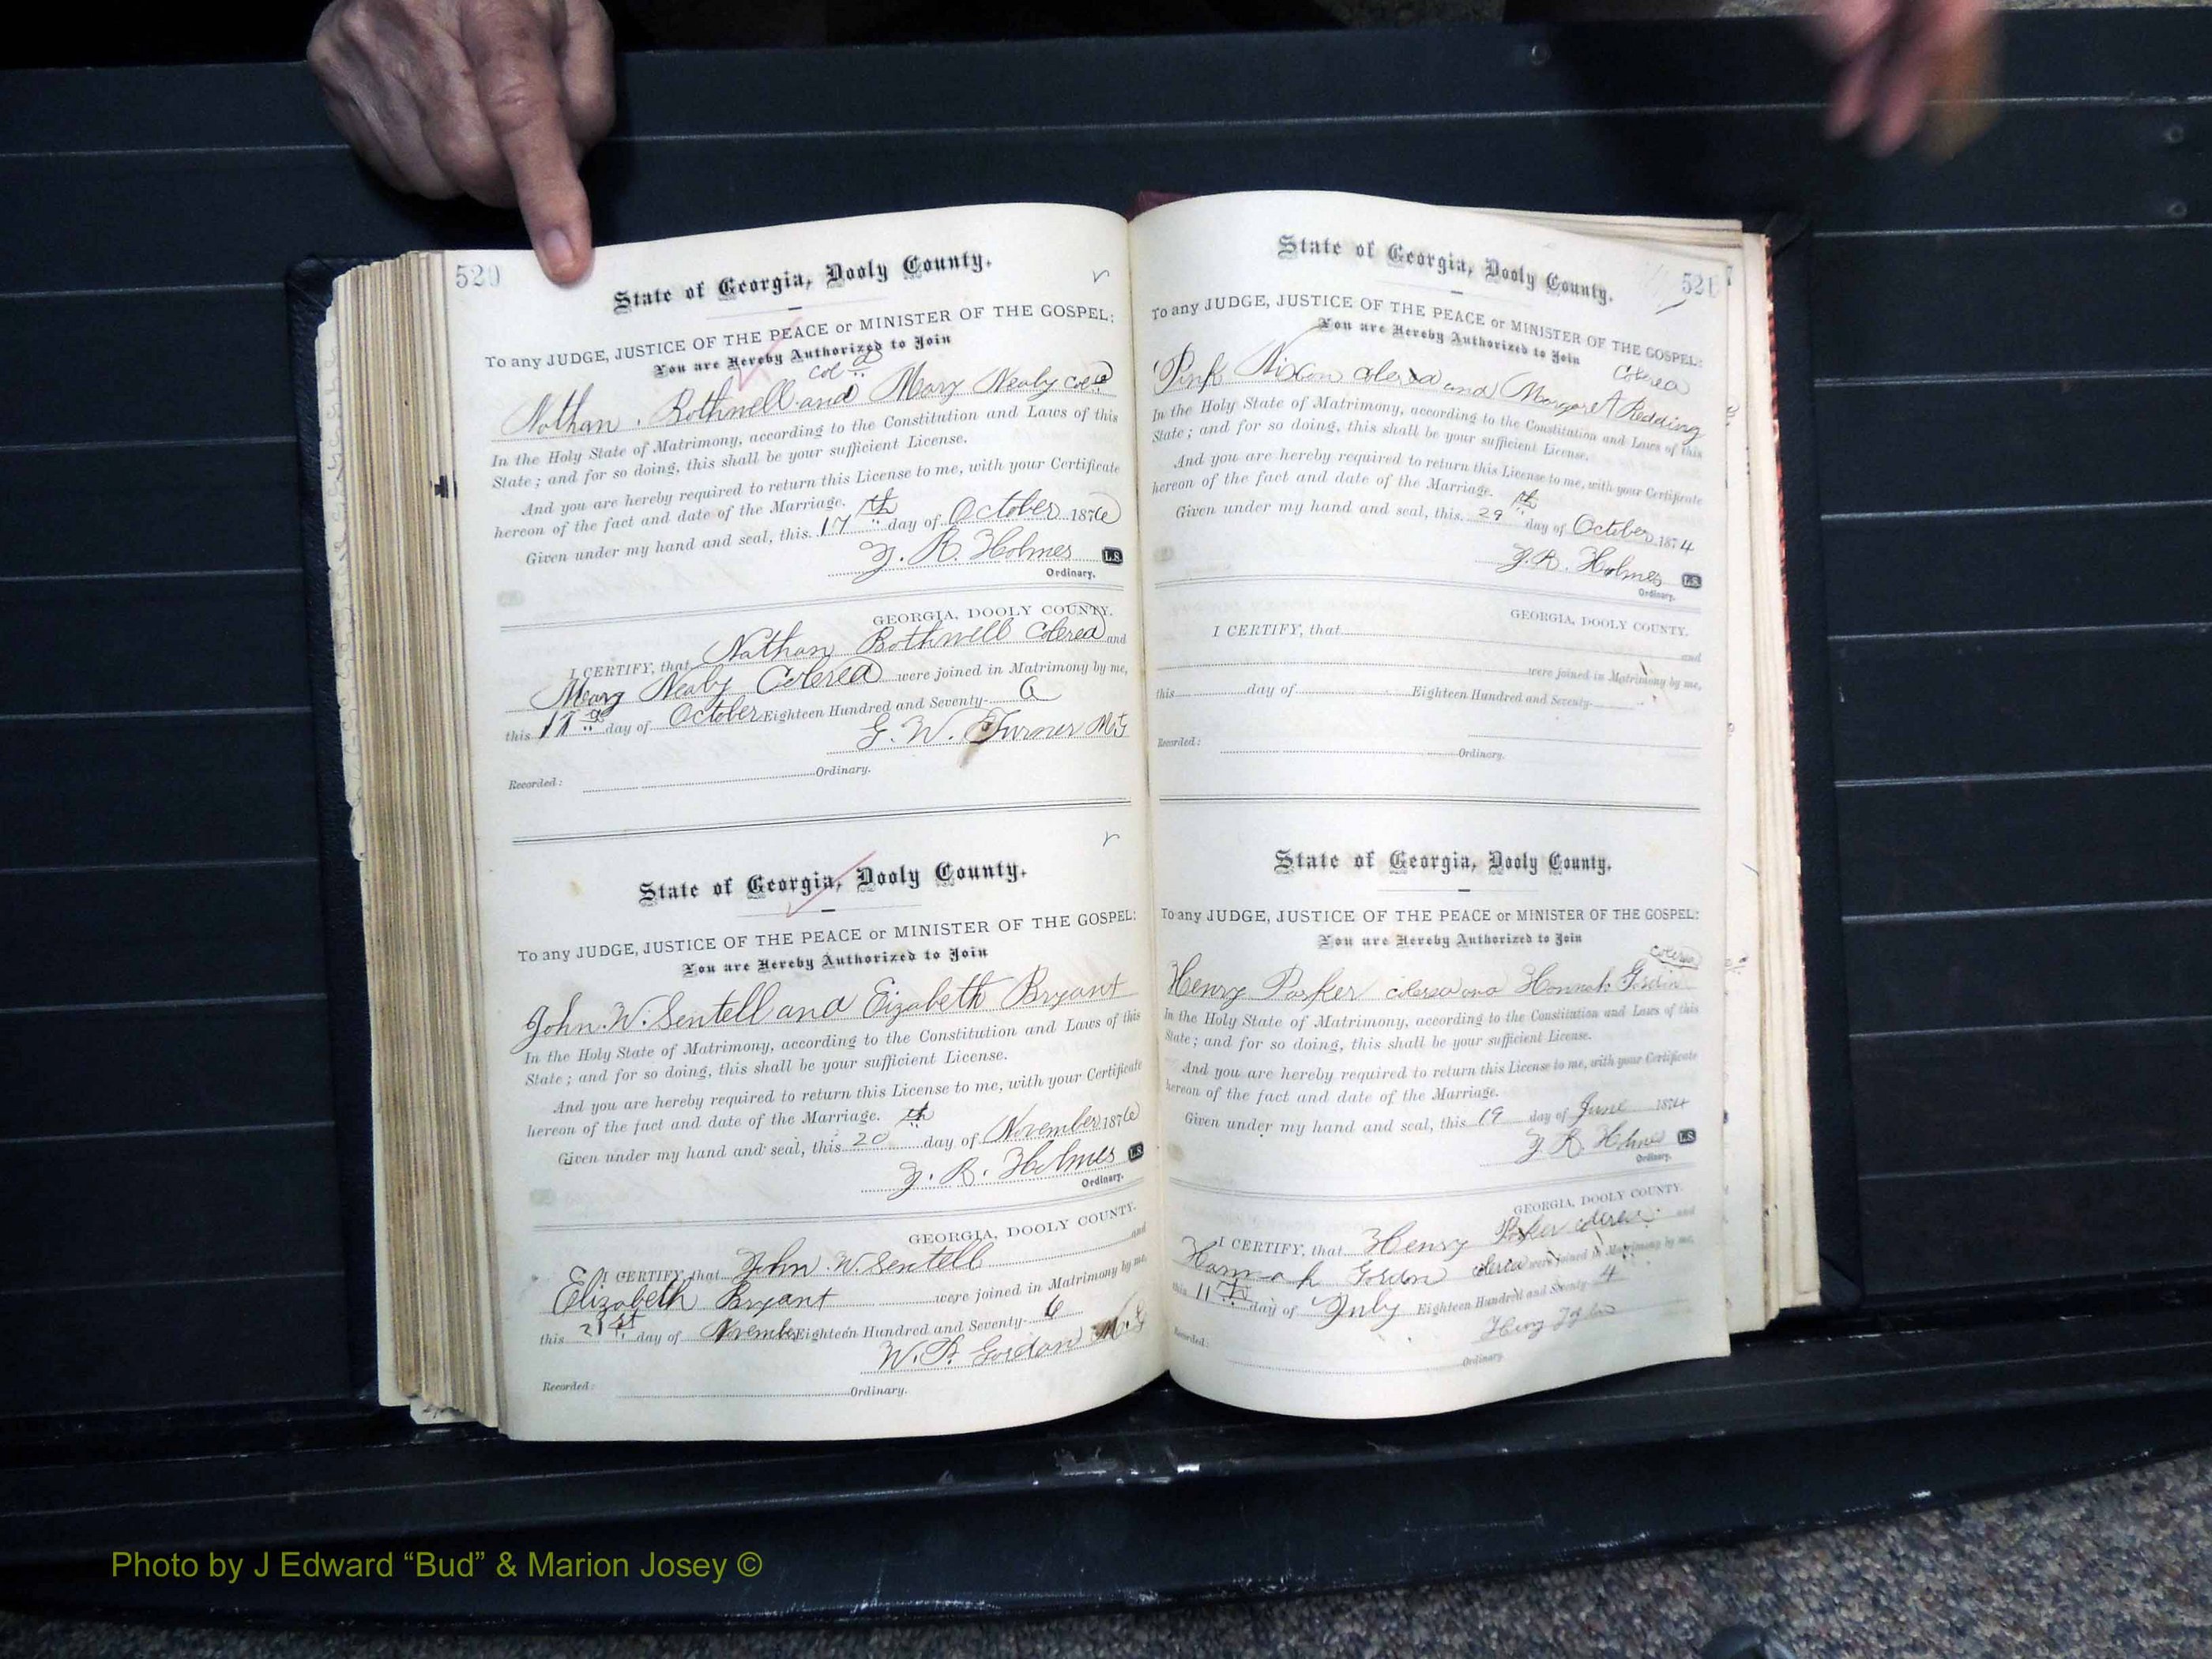 520
State of Georgia, Dooly County.
To any JUDGE, JUSTICE OF THE PEACE or MINISTER OF THE GOSPEL:
You are Hereby Authorized to Join
col d
Nathan . Bothwell and Mary Nealy Col d
In the Holy State of Matrimony, according to the Constitution and Laws of this
State; and for so doing, this shall be your sufficient License.
And you are hereby required to return this License to me, with your Certificate
hereon of the fact and date of the Marriage.
Given under my hand and seal, this 17 th day of October 1876
Y. R. Holmes L.S.
Ordinary.
GEORGIA, DOOLY COUNTY.
I CERTIFY, that Nathan Bothwell Colerea and
Mary Nealy Colerea were joined in Matrimony by me,
this day of October Eighteen Hundred and Seventy- 6
G. W. Turner M.G
Recorded: Ordinary.
State of Georgia, Dooly County.
To any JUDGE, JUSTICE OF THE PEACE or MINISTER OF THE GOSPEL:
You are Hereby Authorized to Join
John. W. Sentell and Eizabeth Bryant
In the Holy State of Matrimony, according to the Constitution and Laws of this
State; and for so doing, this shall be your sufficient License.
And you are hereby required to return this License to me, with your Certificate
hereon of the fact and date of the Marriage.
Given under my hand and seal, this 20 th day of November 1876
Y. R. Holmes L.S.
Ordinary.
GEORGIA, DOOLY COUNTY.
I CERTIFY, that John. W. Sentell and
Elizabeth Bryant were joined in Matrimony by me,
this 21 st day of November Eighteen Hundred and Seventy- 6
W. B. Gordan M.G
Recorded: Ordinary.
521
State of Georgia, Dooly County.
To any JUDGE, JUSTICE OF THE PEACE or MINISTER OF THE GOSPEL:
You are Hereby Authorized to Join
Colerea
Pink Nixon colerea and Margaret Redding
In the Holy State of Matrimony, according to the Constitution and Laws of this
State; and for so doing, this shall be your sufficient License.
And you are hereby required to return this License to me, with your Certificate
hereon of the fact and date of the Marriage.
Given under my hand and seal, this 29 th day of October 1874
Y. R. Holmes L.S.
Ordinary.
GEORGIA, DOOLY COUNTY.
I CERTIFY, that
and
were joined in Matrimony by me,
this day of Eighteen Hundred and Seventy-
Recorded: Ordinary.
State of Georgia, Dooly County.
To any JUDGE, JUSTICE OF THE PEACE or MINISTER OF THE GOSPEL:
You are Hereby Authorized to Join
colerea
Henry Parker colerea and Hannah Gordin
In the Holy State of Matrimony, according to the Constitution and Laws of this
State; and for so doing, this shall be your sufficient License.
And you are hereby required to return this License to me, with your Certificate
hereon of the fact and date of the Marriage.
Given under my hand and seal, this 19 day of June 1874
Y. R. Holmes L.S.
Ordinary.
GEORGIA, DOOLY COUNTY.
I CERTIFY, that Henry Parker colerea and
Hannah Gordon colerea were joined in Matrimony by me,
this 11 th day of July Eighteen Hundred and Seventy- 4
Recorded: Ordinary.
Photo by J Edward “Bud” & Marion Josey ©